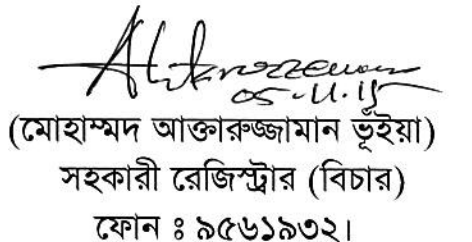 05-11-15
(মোহাম্মদ আক্তারুজ্জামান ভূঁইয়া)
সহকারী রেজিস্ট্রার (বিচার)
ফোন ঃ ৯৫৬১৯৩২।